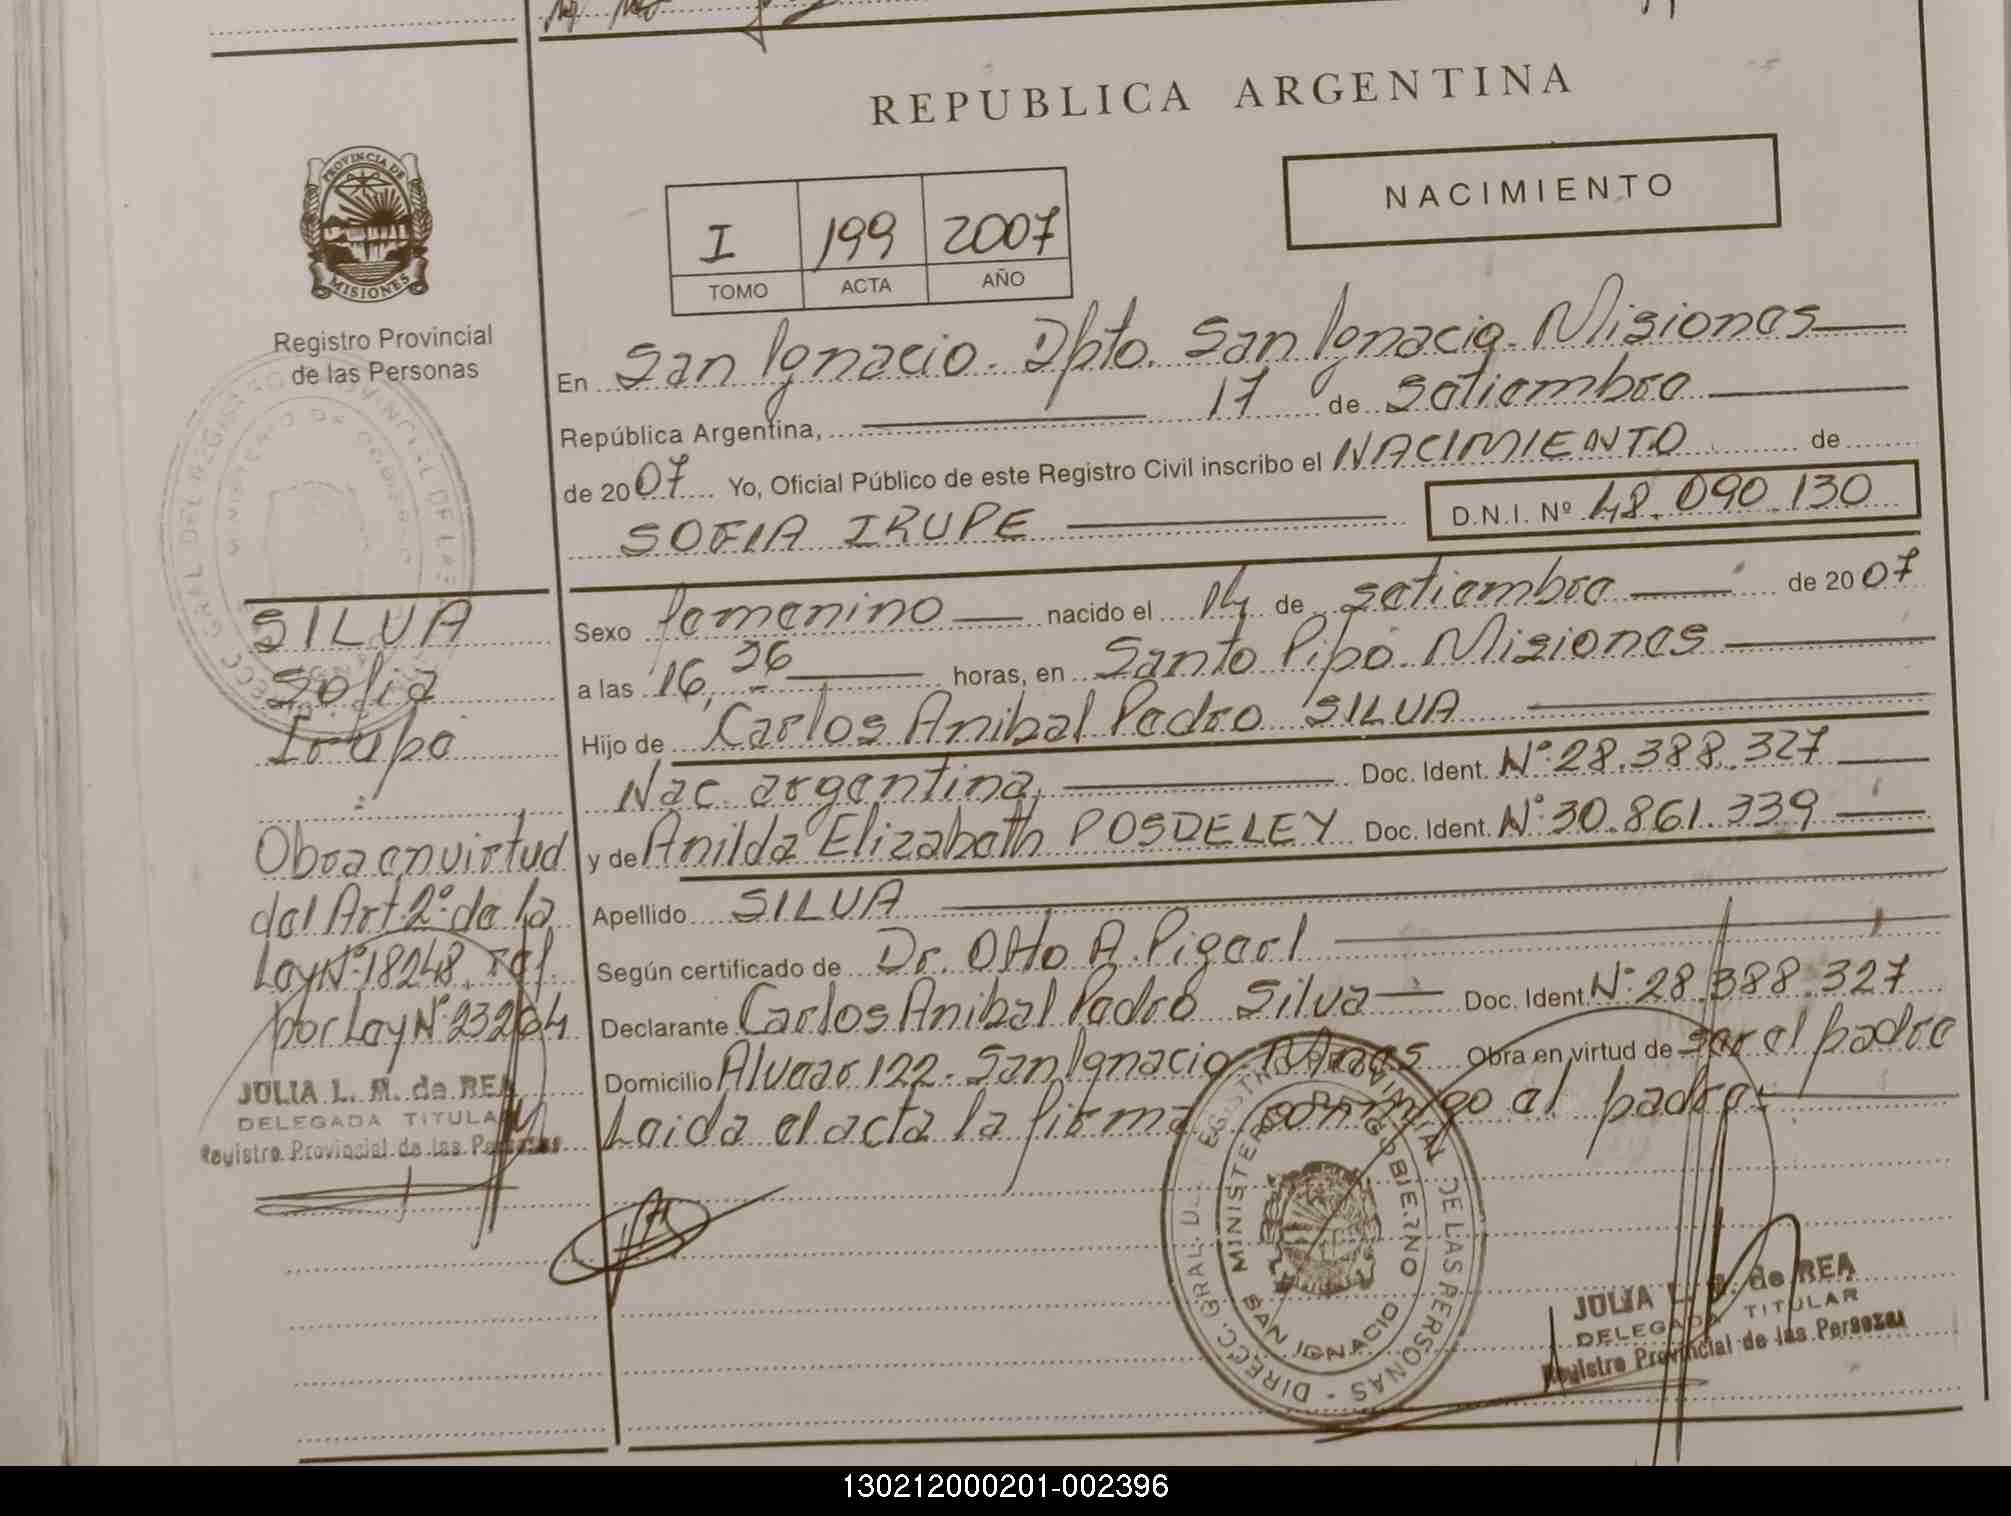 REPUBLICA ARGENTINA
NACIMIENTO
I 199 2007
TOMO ACTA AÑO
PROVINCIA DE MISIONES
Registro Provincial
de las Personas
En San Ignacio. Dpto. San Ignacio. Misiones
República Argentina, 17 de Setiembre
de 2007 Yo, Oficial Público de este Registro Civil inscribo el NACIMIENTO de
SOFIA IRUPE D.N.I. Nº 48.090.130
Sexo femenino nacido el 14 de setiembre de 2007
a las 16, 36 horas, en Santo Pipó. Misiones
Hijo de Carlos Anibal Pedro SILVA
Nac. argentina, Doc. Ident. Nº 28.388.327
y de Anilda Elizabeth POSDELEY Doc. Ident. Nº 30.861.339
Apellido SILVA
Según certificado de Dr. Otto A.
Declarante Carlos Anibal Pedro Silva Doc. Ident. Nº 28.388.327
Domicilio Alvear 122. San Ignacio. Mnes Obra en virtud de ser el padre
Leida el acta la firma conmigo el padre.
SILVA
Sofia
Irupe
Obra en virtud
del Art. 2º de la
Ley Nº 18248, ref.
por Ley Nº 23264
JULIA L. M. de REA
DELEGADA TITULAR
Registro Provincial de las Personas
DIRECC. GRAL. DEL REGISTRO PROVINCIAL DE LAS PERSONAS
MINISTERIO DE GOBIERNO
SAN IGNACIO
JULIA L. M. de REA
DELEGADA TITULAR
Registro Provincial de las Personas
130212000201-002396